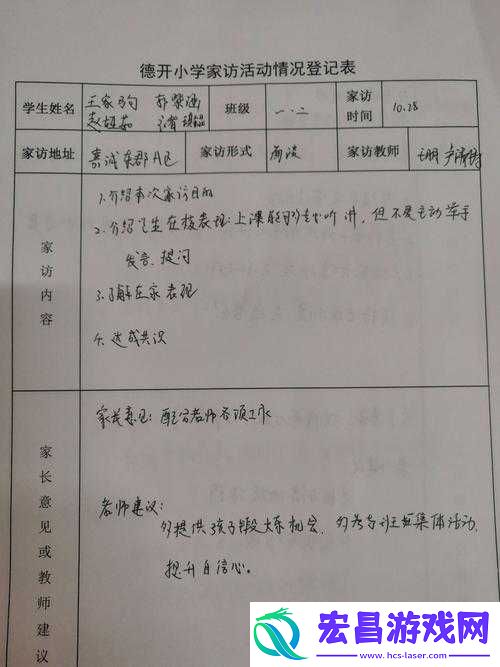 德开小学家访活动情况登记表
学生姓名 王家驹 郭紫涵 班级 一.二 家访时间 10.28
赵娅茹
家访地址 嘉诚东郡A区 家访形式 面谈 家访教师
家访内容
1.介绍本次家访目的
2.介绍学生在校表现:上课能够专心听讲,但不爱主动举手
发言、提问
3.了解在家表现
4.达成共识
家长意见或教师建议
家长意见:配合老师各项工作
老师建议:
多提供孩子锻炼机会,多参与班级集体活动,
提升自信心。
宏昌游戏网
www.hcs-laser.com